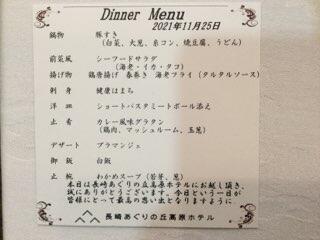 Dinner Menu
2021年11月25日
鍋物 豚すき
(白菜、大葱、糸コン、焼豆腐、うどん)
前菜風 シーフードサラダ
(海老・イカ・タコ)
揚げ物 鶏唐揚げ 春巻き 海老フライ (タルタルソース)
刺身 健康はまち
洋皿 ショートパスタミートボール添え
止肴 カレー風味グラタン
(鶏肉、マッシュルーム、玉葱)
デザート ブラマンジェ
御飯 白飯
止椀 わかめスープ (若芽、葱)
本日は長崎あぐりの丘高原ホテルにお越し頂き、
誠にありがとうございます。今日という一日が
皆様にとって最高の思い出となりますように
長崎あぐりの丘高原ホテル